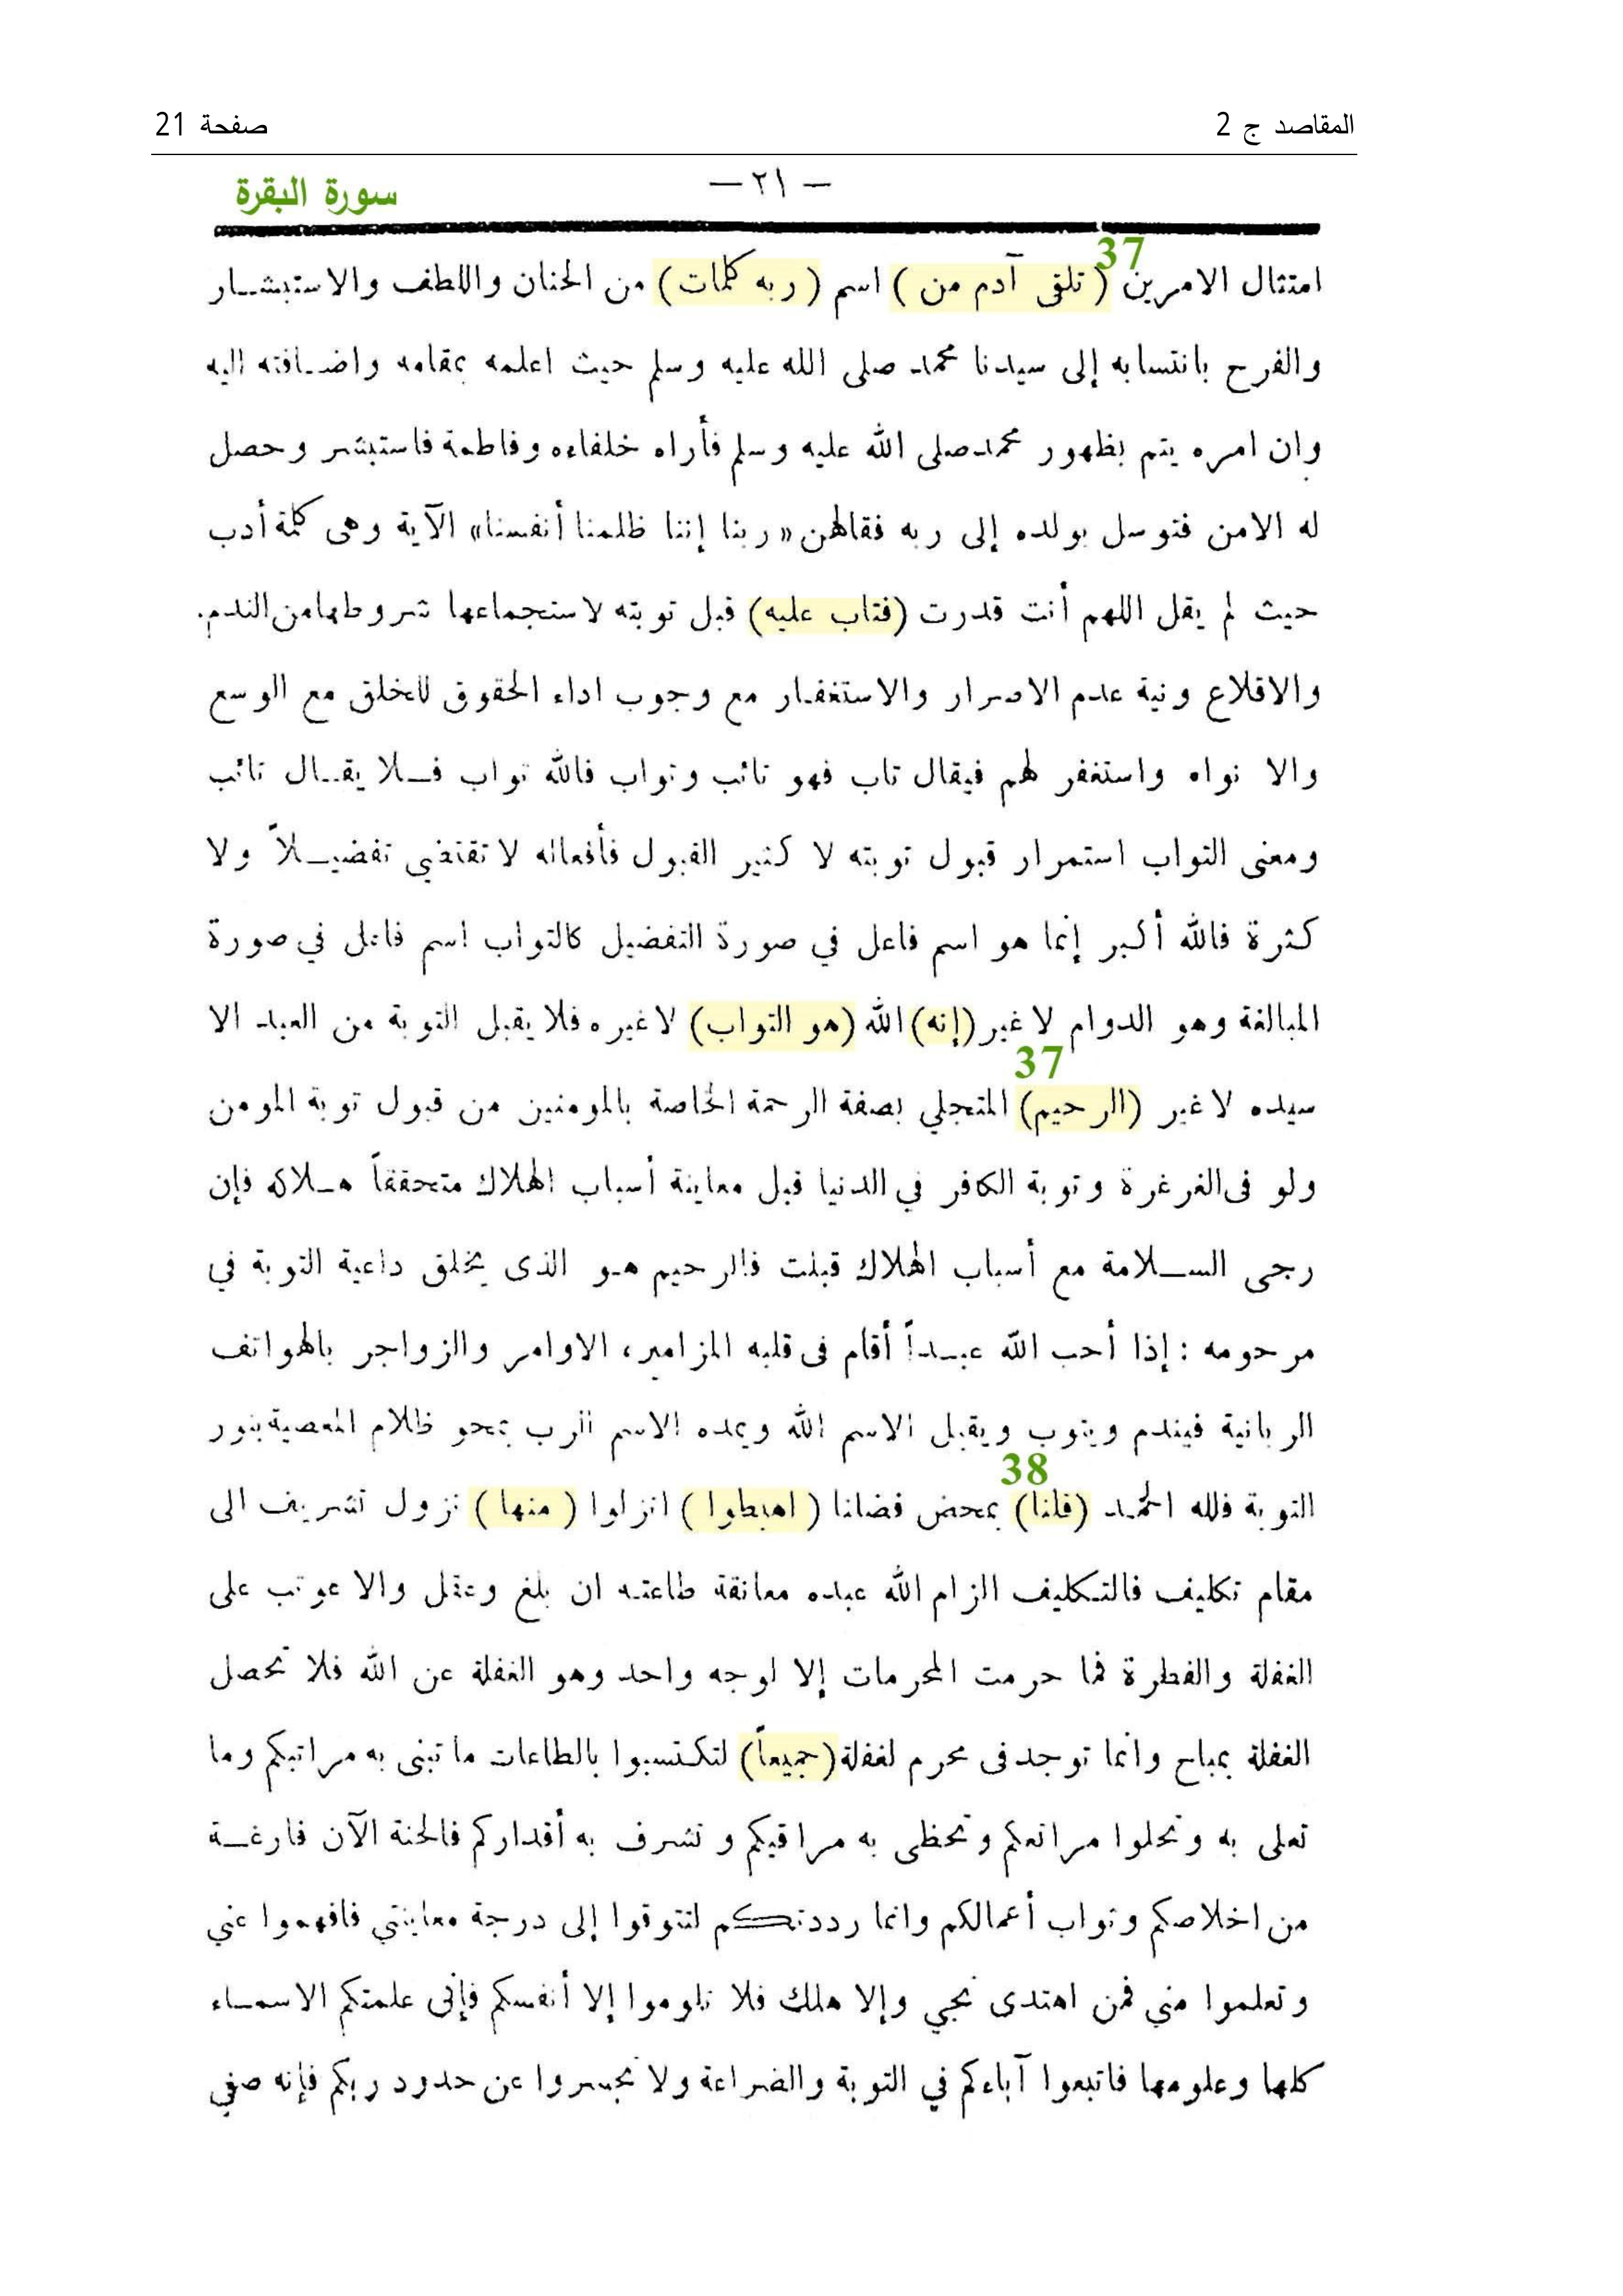 المقاصد ج 2
صفحة 21
— ٢١ —
سورة البقرة
37
امتثال الامرين ( تلقى آدم من ) اسم ( ربه كلمات ) من الحنان واللطف والاستبشار
والفرح بانتسابه إلى سيدنا محمد صلى الله عليه وسلم حيث اعلمه بمقامه واضافته اليه
وان امره يتم بظهور محمد صلى الله عليه وسلم فأراه خلفاءه وفاطمة فاستبشر وحصل
له الامن فتوسل بولده إلى ربه فقالهن « ربنا إننا ظلمنا أنفسنا» الآية وهى كلمة أدب
حيث لم يقل اللهم أنت قدرت (فتاب عليه) قبل توبته لاستجماعها شروطها من الندم.
والاقلاع ونية عدم الاصرار والاستغفار مع وجوب اداء الحقوق للخلق مع الوسع
والا نواه واستغفر لهم فيقال تاب فهو تائب وتواب فالله تواب فلا يقال تائب
ومعنى التواب استمرار قبول توبته لا كثير القبول فأفعاله لا تقتضي تفضيلاً ولا
كثرة فالله أكبر إنما هو اسم فاعل في صورة التفضيل كالتواب اسم فاعل في صورة
المبالغة وهو الدوام لا غير (إنه) الله (هو التواب) لا غيره فلا يقبل التوبة من العبد الا
37
سيده لا غير (الرحيم) المتجلي بصفة الرحمة الخاصة بالمومنين من قبول توبة المومن
ولو فى الغرغرة وتوبة الكافر في الدنيا قبل معاينة أسباب الهلاك متحققاً هلاكه فإن
رجى السلامة مع أسباب الهلاك قبلت فالرحيم هو الذى يخلق داعية التوبة في
مرحومه : إذا أحب الله عبداً أقام فى قلبه المزامير، الاوامر والزواجر بالهواتف
الربانية فيندم ويتوب ويقبل الاسم الله ويمده الاسم الرب بمحو ظلام المعصية بنور
38
التوبة فلله الحمد (قلنا) بمحض فضلنا ( اهبطوا ) انزلوا ( منها ) نزول تشريف الى
مقام تكليف فالتكليف الزام الله عبده معانقة طاعته ان بلغ وعقل والا عوتب على
الغفلة والفطرة فما حرمت المحرمات إلا لوجه واحد وهو الغفلة عن الله فلا تحصل
الغفلة بمباح وانما توجد فى محرم لغفلة (جميعاً) لتكتسبوا بالطاعات ما تبنى به مراتبكم وما
تعلى به وتحلوا مراتعكم وتحظى به مراقيكم وتشرف به أقداركم فالجنة الآن فارغة
من اخلاصكم وثواب أعمالكم وانما رددتكم لتتوقوا إلى درجة معاينتي فافهموا عني
وتعلموا مني فمن اهتدى نجي وإلا هلك فلا تلوموا إلا أنفسكم فإنى علمتكم الاسماء
كلها وعلومها فاتبعوا آباءكم في التوبة والضراعة ولا تجسروا عن حدود ربكم فإنه صفي